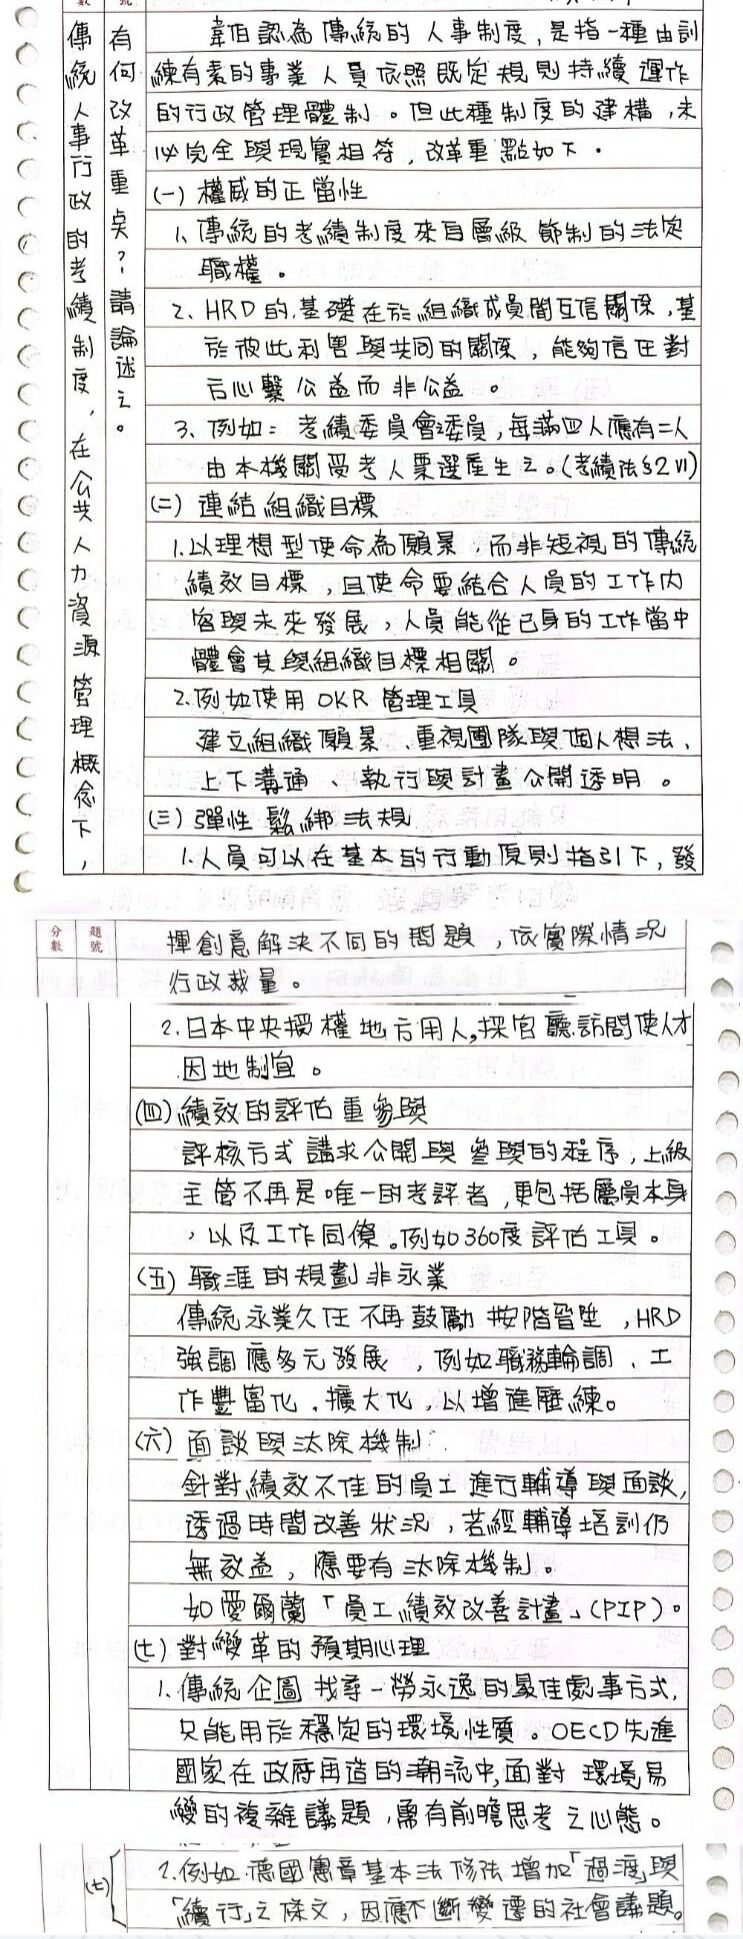 傳統人事行政的考績制度，在公共人力資源管理概念下，
有何改革重點？請論述之。
韋伯認為傳統的人事制度，是指一種由訓
練有素的事業人員依照既定規則持續運作
的行政管理體制。但此種制度的建構，未
必完全與現實相符，改革重點如下。
(一) 權威的正當性
1、傳統的考績制度來自層級節制的法定
職權。
2、HRD的基礎在於組織成員間互信關係，基
於彼此利害與共同的關係，能夠信任對
方心繫公益而非公益。
3、例如：考績委員會委員，每滿四人應有二人
由本機關受考人票選產生之。(考績法§2 VI)
(二) 連結組織目標
1.以理想型使命為願景，而非短視的傳統
績效目標，且使命要結合人員的工作內
容與未來發展，人員能從己身的工作當中
體會其與組織目標相關。
2.例如使用OKR管理工具
建立組織願景、重視團隊與個人想法、
上下溝通、執行與計畫公開透明。
(三) 彈性鬆綁法規
1.人員可以在基本的行動原則指引下，發
分數 題號
揮創意解決不同的問題，依實際情況
行政裁量。
2.日本中央授權地方用人,採官廳訪問使人才
因地制宜。
(四) 績效的評估重參與
評核方式講求公開與參與的程序，上級
主管不再是唯一的考評者，更包括屬員本身
，以及工作同僚。例如360度評估工具。
(五) 職涯的規劃非永業
傳統永業久任不再鼓勵按階晉陞，HRD
強調應多元發展，例如職務輪調、工
作豐富化、擴大化，以增進歷練。
(六) 面談與汰除機制
針對績效不佳的員工進行輔導與面談，
透過時間改善狀況，若經輔導培訓仍
無效益，應要有汰除機制。
如愛爾蘭「員工績效改善計畫」(PIP)。
(七) 對變革的預期心理
1.傳統企圖找尋一勞永逸的最佳處事方式，
只能用於穩定的環境性質。OECD先進
國家在政府再造的潮流中,面對環境易
變的複雜議題，需有前瞻思考之心態。
(七) 2.例如德國憲章基本法修法增加「過渡」與
「續行」之條文，因應不斷變遷的社會議題。